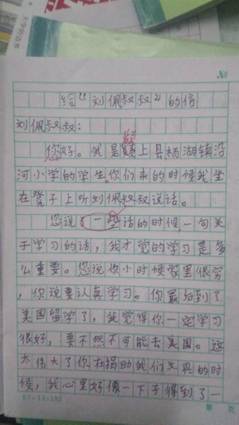 给"刘佩叔叔"的信
刘佩叔叔：
您好。我是颍上县栖湖镇沿
河小学的学生，你们来的时候我坐
在凳子上听刘佩叔叔说话。
您说一些话的时候一句关
于学习的话，我才觉的学习是多
么重要。您说你小时候家里很穷
，你说要认真学习。你最后到了
美国留学了，我觉得你一定学习
很好，要不然不可能去美国。这
太伟大了你在捐助我们文具的时
候，我心里好像一下子得到了一